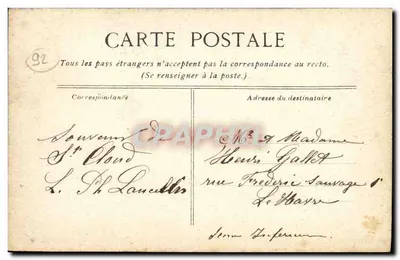 92
CARTE POSTALE
Tous les pays étrangers n'acceptent pas la correspondance au recto.
(Se renseigner à la poste.)
Correspondance
Adresse du destinataire
Souvenir de
St Cloud
L. Ph Lancelin
Mr et Madame
Henri Gallet
rue Frédéric Sauvage 1
Le Havre
Seine Inférieure